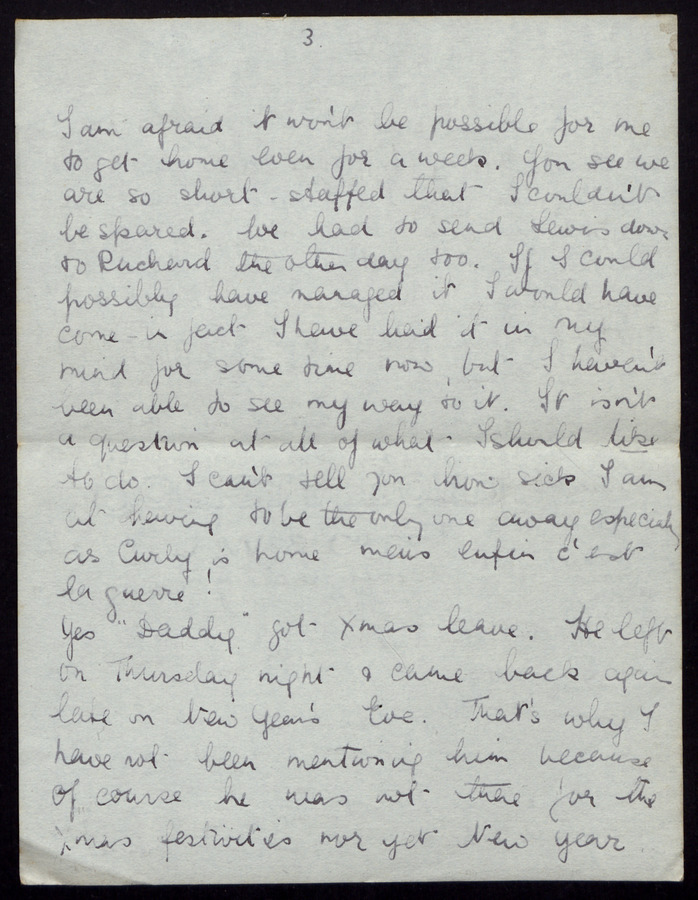 3.
I am afraid it won't be possible for me
to get home even for a week. You see we
are so short-staffed that I couldn't
be spared. We had to send Lewis down
to Richard the other day too. If I could
possibly have managed it I would have
come - in fact I have had it in my
mind for some time now, but I haven't
been able to see my way to it. It isn't
a question at all of what I should like
to do. I can't tell you how sick I am
at having to be the only one away especially
as Curly is home mais enfin c'est
la guerre!
Yes "Daddy" got Xmas leave. He left
on Thursday night & came back again
late on New Year's Eve. That's why I
have not been mentioning him because
of course he was not there for the
Xmas festivities nor yet New Year